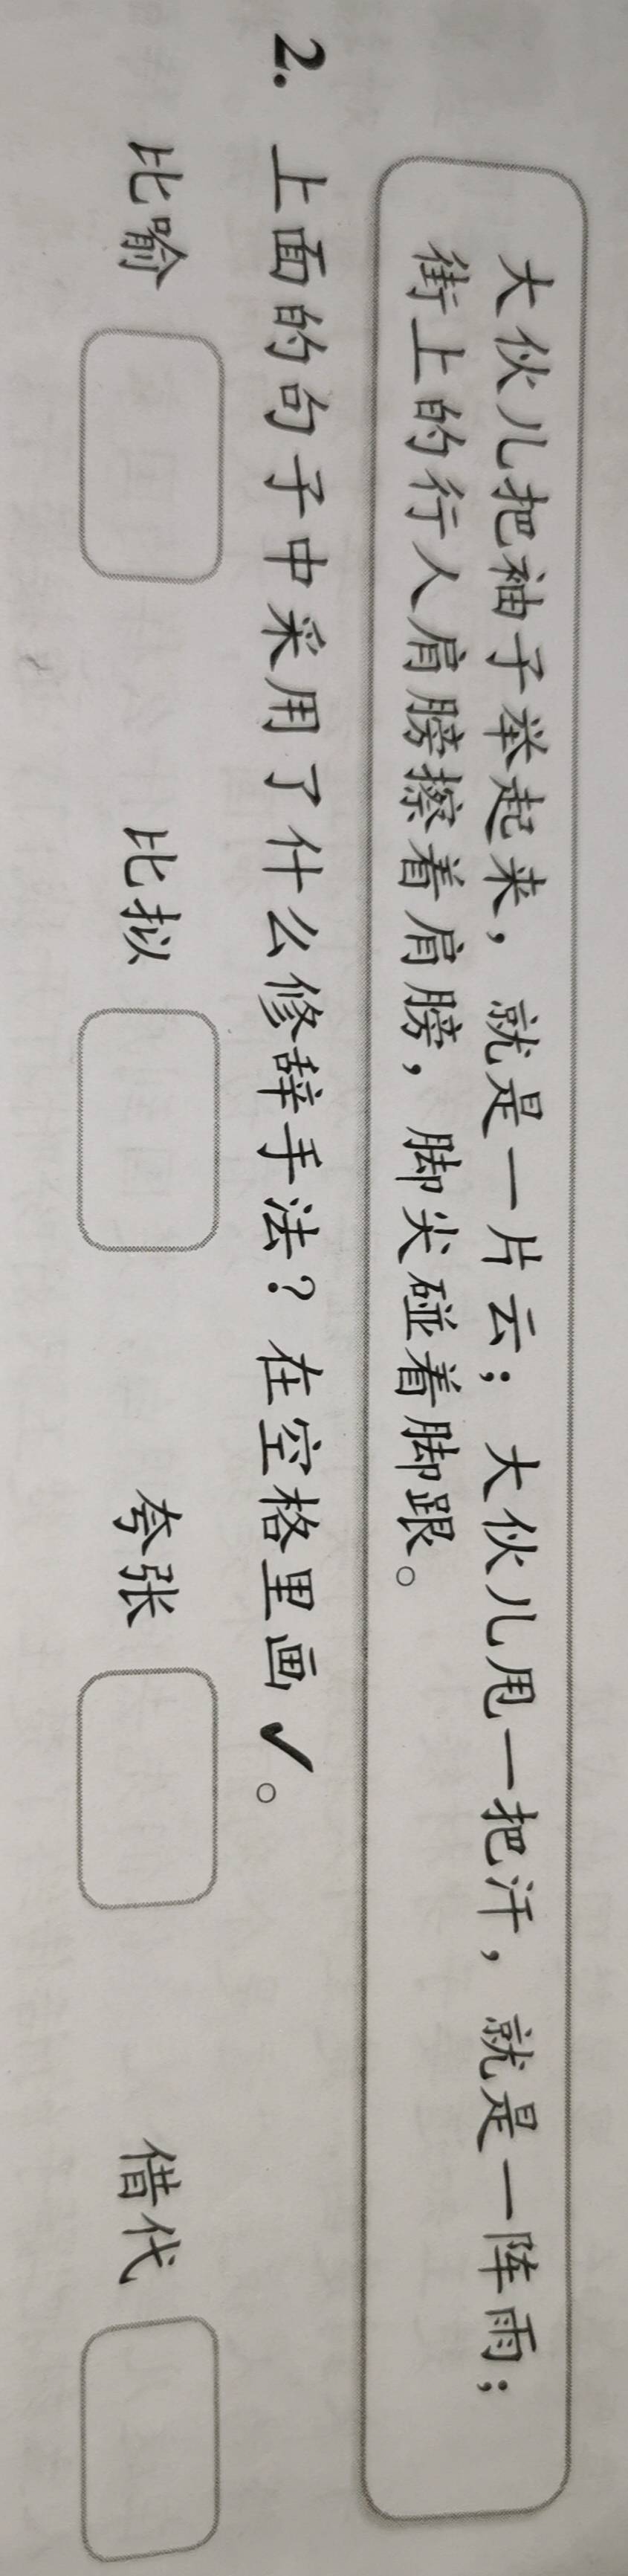 大伙儿把袖子举起来，就是一片云；大伙儿甩一把汗，就是一阵雨；
街上的行人肩膀擦着肩膀，脚尖碰着脚跟。
2. 上面的句子中采用了什么修辞手法？在空格里画✓。
比喻 比拟 夸张 借代